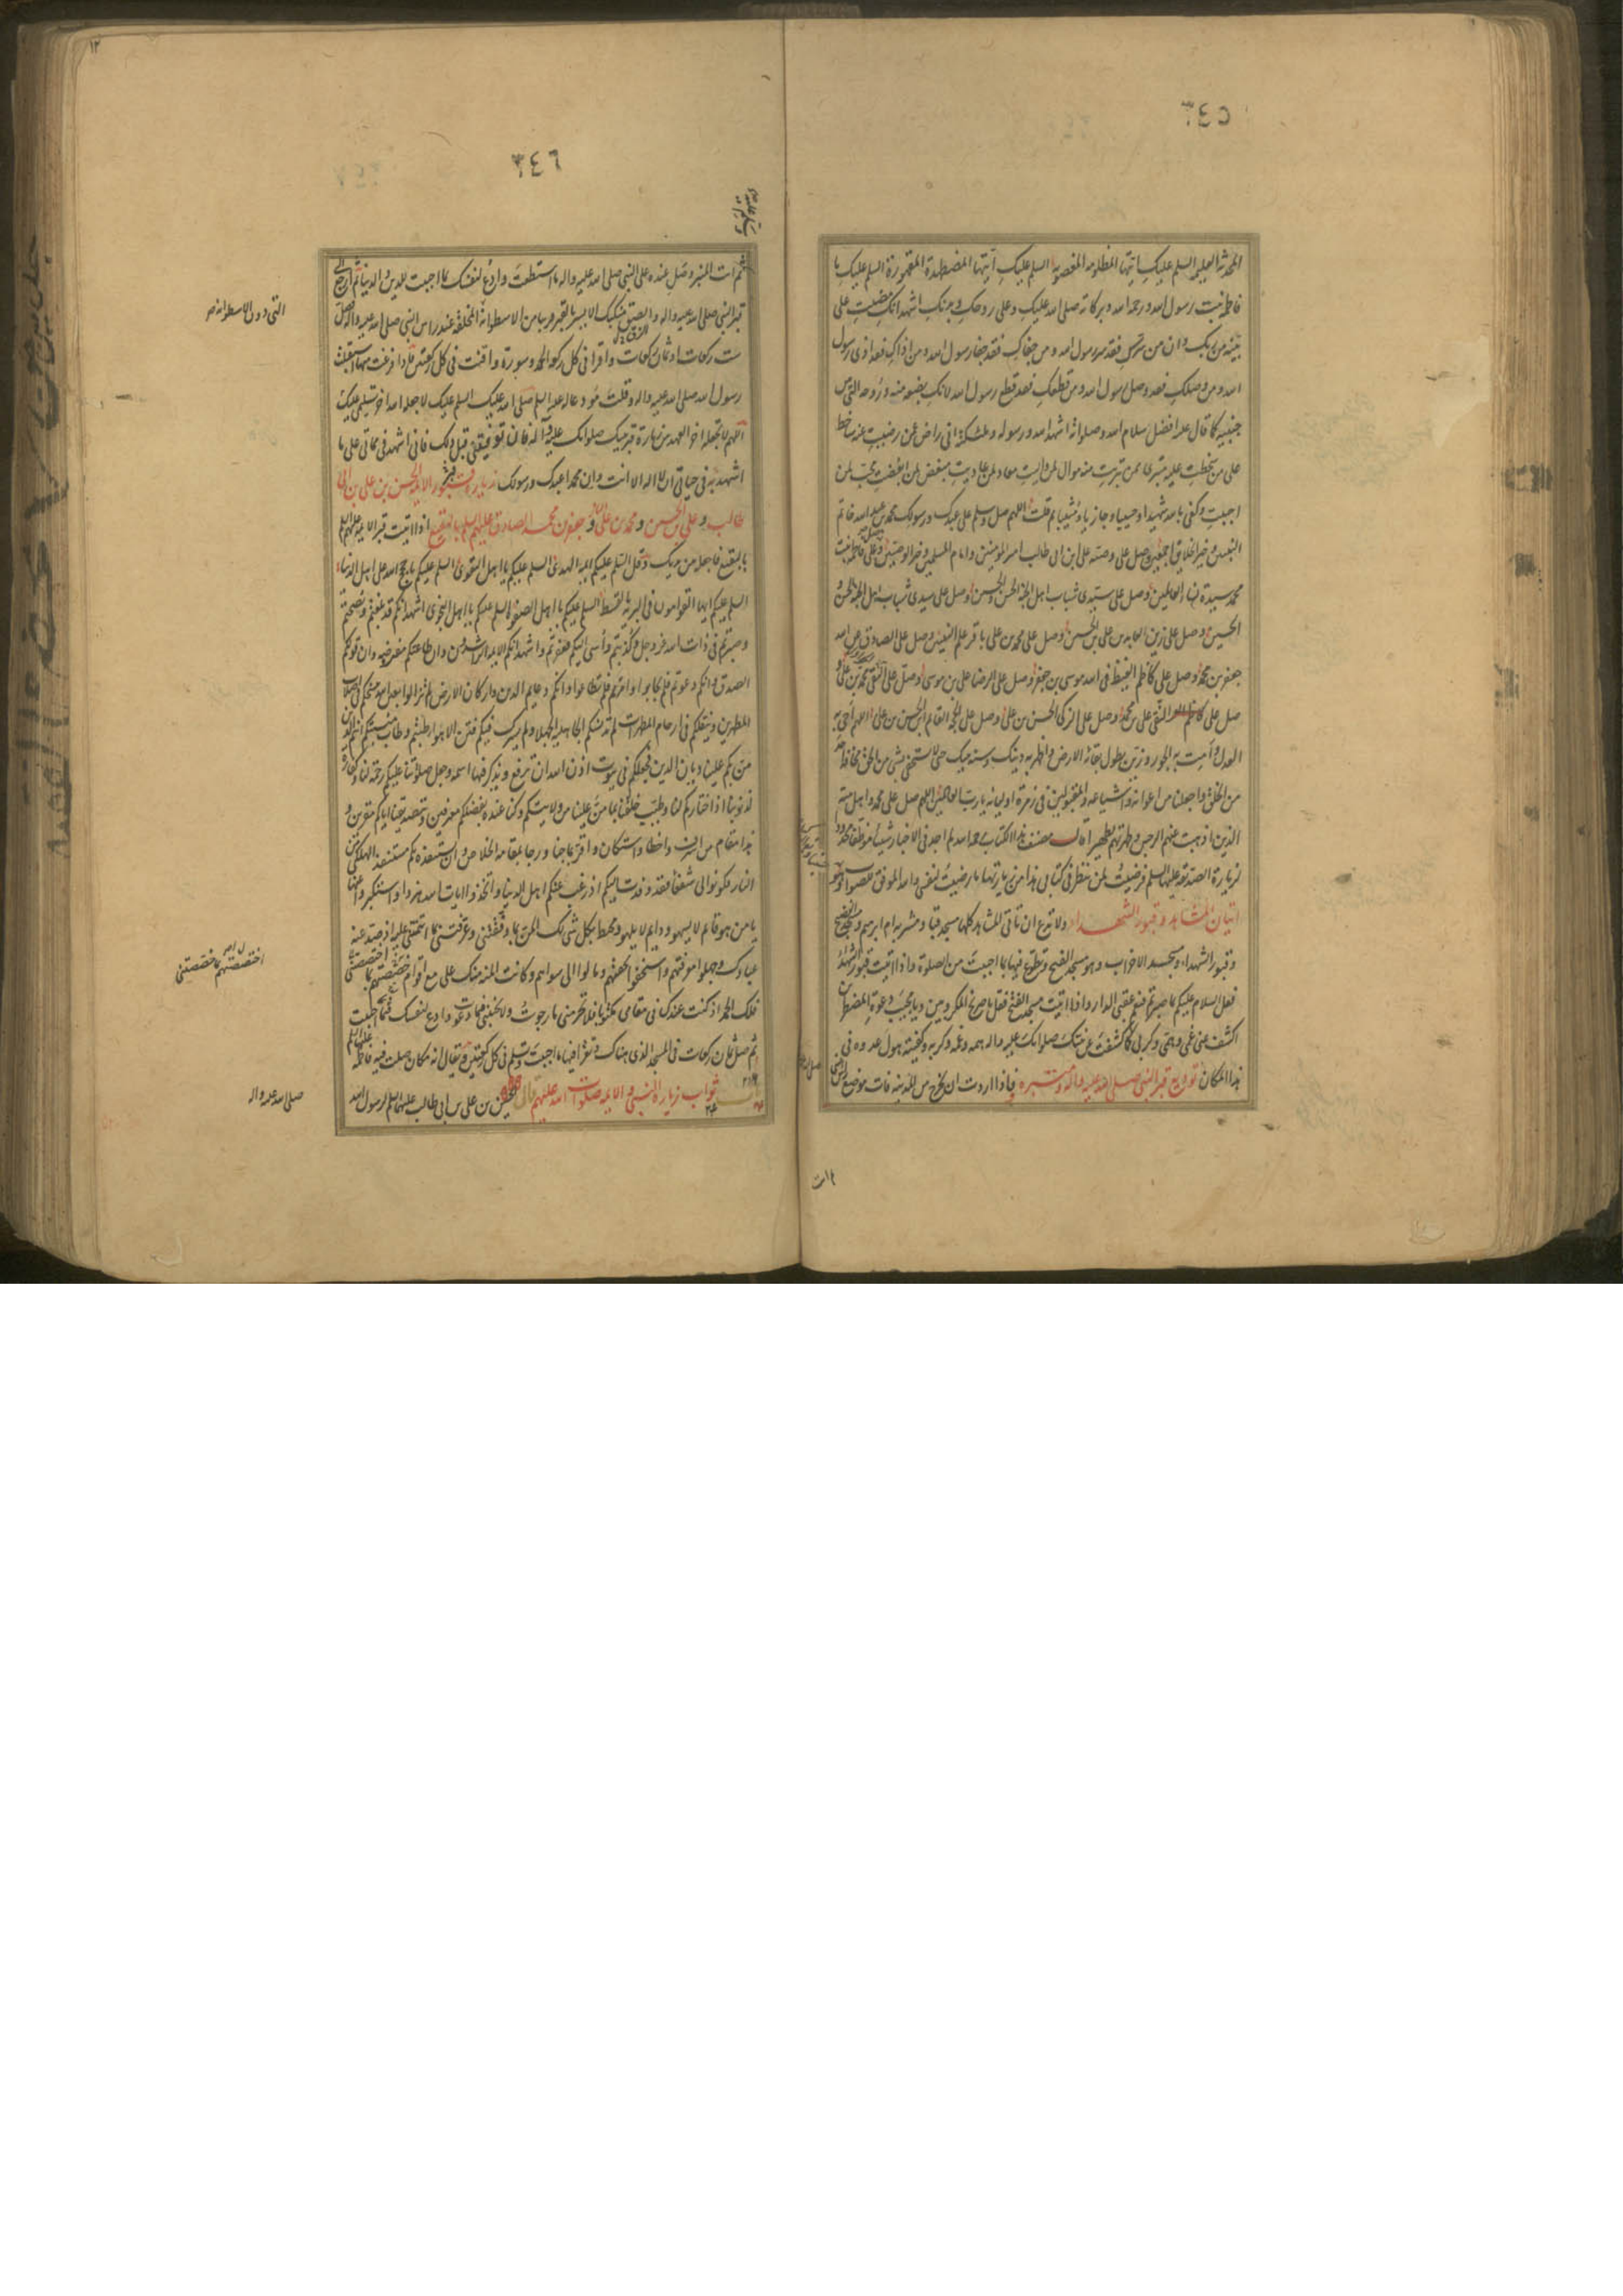 ٣٤٥
المحدثة العليمة السلم عليكِ ايتها المظلومة المغصوبة السلم عليكِ ايتها المضطهدة المقهورة السلم عليكِ يا
فاطمة بنت رسول الله ورحمة الله وبركاته صلى الله عليكِ وعلى روحكِ وبدنكِ اشهد انكِ مضيتِ على
بينة من ربكِ وان من سركِ فقد سر رسول الله ومن جفاكِ فقد جفا رسول الله ومن اذاكِ فقد اذى رسول
الله ومن وصلكِ فقد وصل رسول الله ومن قطعكِ فقد قطع رسول الله لانكِ بضعة منه وروحه التي بين
جنبيه كما قال عليه افضل سلام الله وصلواته اشهد الله ورسوله وملئكته اني راض عمن رضيتِ عنه ساخط
على من سخطتِ عليه متبرئ ممن تبرئتِ منه موال لمن واليتِ معاد لمن عاديتِ مبغض لمن ابغضتِ محب لمن
احببتِ وكفى بالله شهيدا وحسيبا وجازيا ومثيبا ثم قلت اللهم صل وسلم على عبدك ورسولك محمد بن عبد الله خاتم
النبيين وخير الخلايق اجمعين وصل على وصيه على ابن ابي طالب امير المؤمنين وامام المسلمين وخير الوصيين وصل على فاطمة بنت
محمد سيدة نساء العالمين وصل على سيدي شباب اهل الجنة الحسن والحسين وصل على سيدي شباب اهل الجنة الحسن و
الحسين وصل على زين العابدين على بن الحسين وصل على محمد بن على باقر علم النبيين وصل على الصادق عن الله
جعفر بن محمد وصل على كاظم الغيظ في الله موسى بن جعفر وصل على الرضا على بن موسى وصل على التقي محمد بن على و
صل على النقي على بن محمد وصل على الزكي الحسن بن على وصل على الحجة القايم ابن الحسن بن على اللهم احي به
العدل وامت به الجور وزين بطول بقائه الارض واظهر به دينك وسنة نبيك حتى لا يستخفي بشي من الحق مخافة احد
من الخلق واجعلنا من اعوانه واشياعه والمقبولين في زمرة اوليائه يا رب العالمين اللهم صل على محمد واهل بيته
الذين اذهبت عنهم الرجس وطهرتهم تطهيرا قال مصنف هذا الكتاب رحمه الله لم اجد في الاخبار شيئا موظفا محدودا
لزيارة الصديقة عليها السلم فرضيت لمن نظر في كتابي هذا من زيارتها ما رضيت لنفسي والله الموفق للصواب
اتيان المشاهد وقبور الشهداء ولا تدع ان تاتي المشاهد كلها مسجد قبا ومشربة ام ابرهيم ومسجد الفضيخ
وقبور الشهداء ومسجد الاحزاب وهو مسجد الفتح وتطوع فيها بما احببت من الصلوة واذا اتيت قبور الشهداء
فقل السلام عليكم بما صبرتم فنعم عقبى الدار واذا اتيت مسجد الفتح فقل يا صريخ المكروبين ويا مجيب دعوة المضطرين
اكشف عني غمي وهمي وكربي كما كشفت عن نبيك صلواتك عليه واله همه وغمه وكربه وكفيته هول عدوه في
هذا المكان توديع قبر النبي صلى الله عليه واله ومنبره فاذا اردت ان تخرج من المدينة فات موضع راس النبي
٣٤٦
ثم ات المنبر وصل عنده على النبي صلى الله عليه واله ما استطعت وادع لنفسك بما احببت للدين والدنيا ثم ارجع الى
قبر النبي صلى الله عليه واله والصق منكبك الايسر بالقبر قريبا من الاسطوانة المخلقة عند راس النبي صلى الله عليه واله وصل
ست ركعات او ثمان ركعات واقرا في كل ركعة الحمد وسورة واقنت في كل ركعتين فاذا فرغت منها استقبلت
رسول الله صلى الله عليه واله وقلت مودعا له عليه السلم صلى الله عليك السلم عليك لا جعله الله اخر تسليمي عليك
اللهم لا تجعله اخر العهد من زيارة قبر نبيك صلواتك عليه واله فان توفيتني قبل ذلك فاني اشهد في مماتي على ما
اشهد به في حياتي ان لا اله الا انت وان محمدا عبدك ورسولك زيارة قبور الائمة الحسن بن على بن ابي
طالب وعلي بن الحسين ومحمد بن على وجعفر بن محمد الصادق عليهم السلم بالبقيع اذا اتيت قبر الائمة عليهم السلم
بالبقيع فاجعلها بين يديك وقل السلم عليكم ائمة الهدى السلم عليكم يا اهل التقوى السلم عليكم يا حجج الله على اهل الدنيا
السلم عليكم ايها القوامون في البرية بالقسط السلم عليكم يا اهل الصفوة السلم عليكم يا اهل النجوى اشهد انكم قد بلغتم ونصحتم
وصبرتم في ذات الله عز وجل وكذبتم واسي اليكم فغفرتم واشهد انكم الائمة الراشدون وان طاعتكم مفترضة وان قولكم
الصدق وانكم دعوتم فلم تجابوا وامرتم فلم تطاعوا وانكم دعايم الدين واركان الارض لم تزالوا بعين الله ينسخكم في اصلاب
المطهرين وينقلكم في ارحام المطهرات لم تدنسكم الجاهلية الجهلاء ولم يشرك فيكم فتن الاهواء طبتم وطاب منبتكم انتم الذين
من بكم علينا ديان الدين فجعلكم في بيوت اذن الله ان ترفع ويذكر فيها اسمه وجعل صلوتنا عليكم رحمة لنا وكفارة
لذنوبنا اذا اختاركم لنا وطيب خلقنا بما من علينا من ولايتكم وكنا عنده بفضلكم معترفين وبتصديقنا اياكم مقرين و
هذا مقام من اسرف واخطا واستكان واقر بما جنا ورجا بمقامه الخلاص وان يستنقذه بكم مستنقذ الهلكى من
النار فكونوا لي شفعا فقد وفدت اليكم اذ رغب عنكم اهل الدنيا واتخذوا ايات الله هزوا واستكبروا عنها
يا من هو قايم لا يسهو ودايم لا يلهو ومحيط بكل شي لك المن بما وفقتني وعرفتني بما ائتمنتني عليه اذ صد عنه
عبادك وجهلوا معرفتهم واستخفوا بحقهم ومالوا الى سواهم وكانت المنة منك على مع اقوام خصصتهم بما
فلك الحمد اذ كنت عندك في مقامي مكتوبا فلا تحرمني ما رجوت ولا تخيبني فيما دعوت وادع لنفسك بما احببت
ثم صل ثمان ركعات في المسجد الذي هناك وتقرا فيها ما احببت وتسلم في كل ركعتين ويقال انه مكان صلت فيه فاطمة عليها السلم
باب ثواب زيارة النبي والائمة صلوات الله عليهم قال الحسين بن على بن ابي طالب عليهما السلم لرسول الله
التي دون الاسطوانة
اختصصتهم بما خصصتني
صلى الله عليه واله